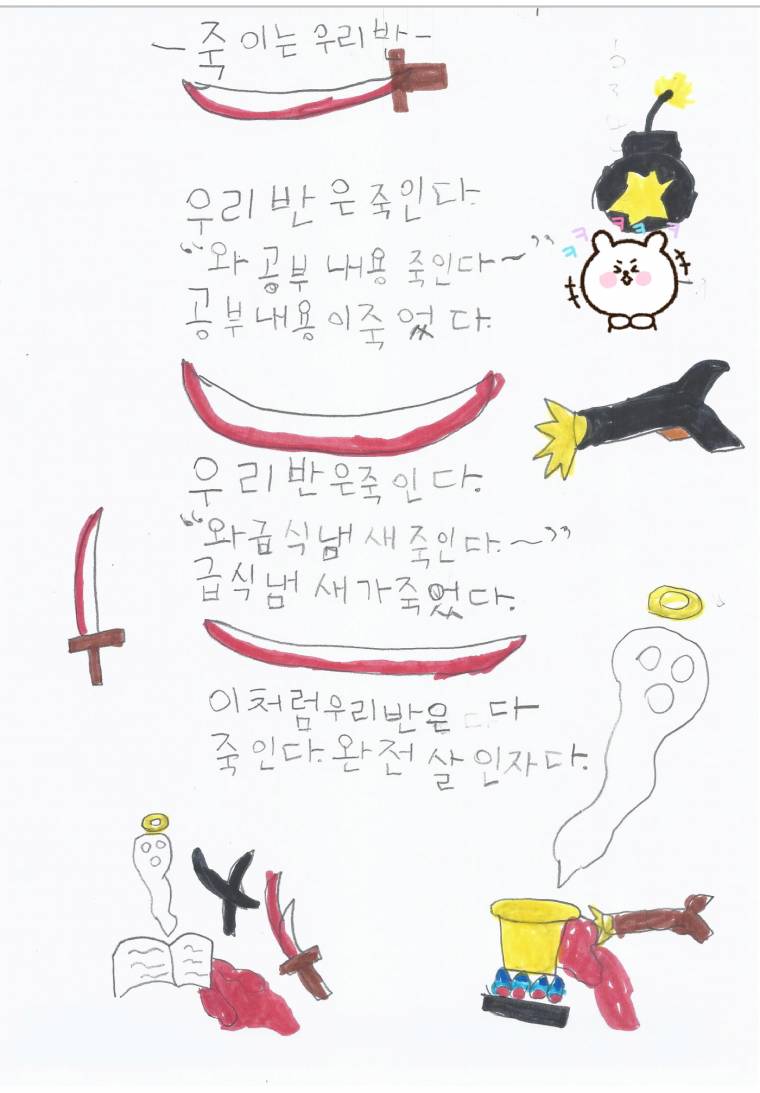 - 죽이는 우리반 -
우리 반은 죽인다.
"와 공부 내용 죽인다~"
ㅋㅋㅋㅋㅋ
공부내용이 죽었다.
우리 반은 죽인다.
"와 급식냄새 죽인다.~"
급식냄새가 죽었다.
이처럼 우리반은 다
죽인다. 완전 살인자다.